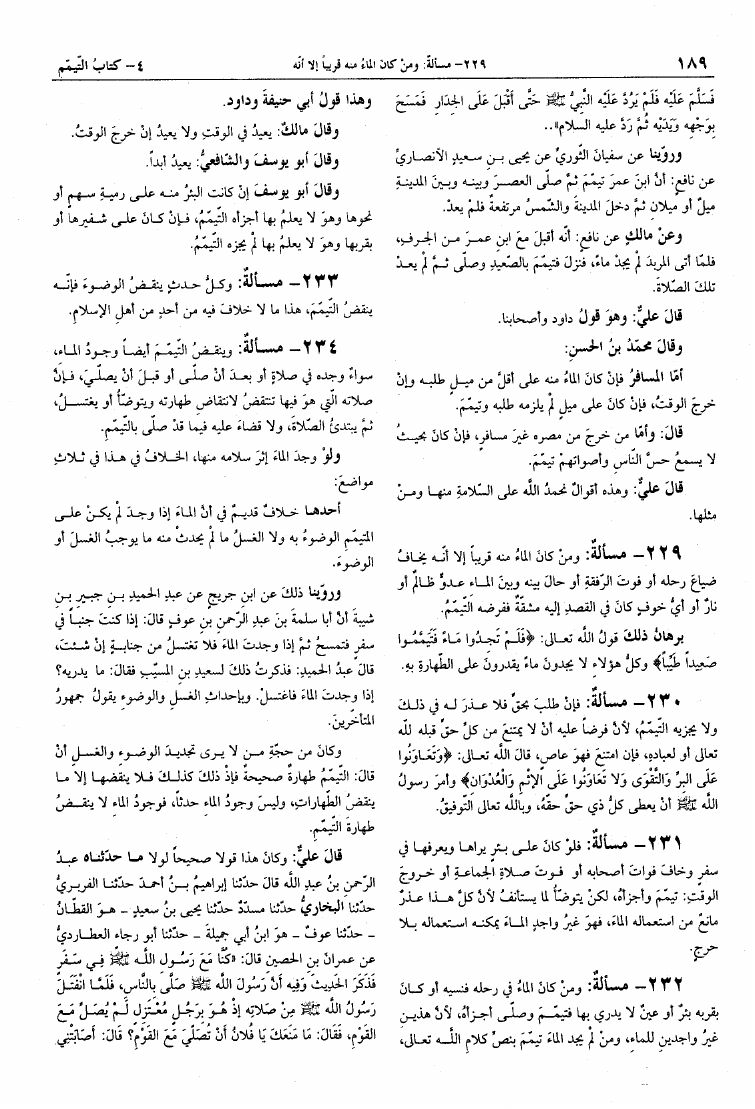 ١٨٩
٢٢٩- مسألةٌ: ومنْ كان الماءُ منه قريباً إلا أنّه
٤- كتابُ التّيمّم
فَسَلَّمَ عَلَيْهِ فَلَمْ يَرُدَّ عَلَيْهِ النَّبِيُّ ﷺ حَتَّى أَقْبَلَ عَلَى الجِدَارِ فَمَسَحَ
بِوَجْهِهِ وَيَدَيْهِ ثُمَّ رَدَّ عليه السلام»..
وروّينا عن سفيانَ الثّوريِّ عن يحيى بنِ سعيدٍ الأنصاريِّ
عن نافعٍ: أنَّ ابنَ عمرَ تيمّمَ ثمَّ صلّى العصرَ وبينه وبينَ المدينةِ
ميلٌ أو ميلانِ ثمَّ دخلَ المدينةَ والشّمسُ مرتفعةٌ فلم يعدْ.
وعنْ مالكٍ عن نافعٍ: أنّه أقبلَ معَ ابنِ عمرَ منَ الجرفِ،
فلمّا أتى المربدَ لمْ يجدْ ماءً، فنزلَ فتيمّمَ بالصّعيدِ وصلّى ثمَّ لمْ يعدْ
تلكَ الصّلاةَ.
قالَ عليٌّ: وهوَ قولُ داود وأصحابنا.
وقالَ محمّدُ بنُ الحسنِ:
أمّا المسافرُ فإنْ كانَ الماءُ منه على أقلَّ من ميلٍ طلبه وإنْ
خرجَ الوقتُ، فإنْ كانَ على ميلٍ لمْ يلزمه طلبه وتيمّمَ.
قالَ: وأمّا من خرجَ من مصره غيرَ مسافرٍ، فإنْ كانَ بحيثُ
لا يسمعُ حسَّ النّاسِ وأصواتهمْ تيمّمَ.
قالَ عليٌّ: وهذه أقوالٌ نحمدُ اللّه على السّلامةِ منها ومنْ
مثلها.
٢٢٩- مسألةٌ: ومنْ كان الماءُ منه قريباً إلا أنّه يخافُ
ضياعَ رحله أو فوتَ الرّفقةِ أو حالَ بينه وبينَ الماءِ عدوٌّ ظالمٌ أو
نارٌ أو أيُّ خوفٍ كانَ في القصدِ إليه مشقّةٌ ففرضه التّيمّمُ.
برهانُ ذلكَ قولُ اللّه تعالى: ﴿فَلَمْ تَجِدُوا مَاءً فَتَيَمَّمُوا
صَعِيداً طَيِّباً﴾ وكلُّ هؤلاءِ لا يجدونَ ماءً يقدرونَ على الطّهارةِ بهِ.
٢٣٠- مسألةٌ: فإنْ طلبَ بحقٍّ فلا عذرَ له في ذلكَ
ولا يجزيه التّيمّمُ، لأنَّ فرضاً عليه أنْ لا يمتنعَ من كلِّ حقٍّ قبله للّه
تعالى أو لعبادِهِ، فإن امتنعَ فهوَ عاصٍ، قالَ اللّه تعالى: ﴿وَتَعَاوَنُوا
عَلَى البِرِّ وَالتَّقْوَى وَلا تَعَاوَنُوا عَلَى الإِثْمِ وَالْعُدْوَانِ﴾ وأمرَ رسولُ
اللّه ﷺ أنْ يعطى كلُّ ذي حقٍّ حقّهُ، وباللّه تعالى التّوفيقُ.
٢٣١- مسألةٌ: فلوْ كانَ على بئرٍ يراها ويعرفها في
سفرٍ وخافَ فواتَ أصحابه أو فوتَ صلاةِ الجماعةِ أو خروجَ
الوقتِ: تيمّمَ وأجزأهُ، لكنْ يتوضّأُ لما يستأنفُ لأنَّ كلَّ هذا عذرٌ
مانعٌ من استعماله الماءَ، فهوَ غيرُ واجدٍ الماءَ يمكنه استعماله بلا
حرجٍ.
٢٣٢- مسألةٌ: ومنْ كانَ الماءُ في رحله فنسيه أو كانَ
بقربه بئرٌ أو عينٌ لا يدري بها فتيمّمَ وصلّى أجزأهُ، لأنَّ هذينِ
غيرُ واجدينِ للماءِ، ومنْ لمْ يجدْ الماءَ تيمّمَ بنصِّ كلامِ اللّه تعالى،
وهذا قولُ أبي حنيفةَ وداود.
وقالَ مالكٌ: يعيدُ في الوقتِ ولا يعيدُ إنْ خرجَ الوقتُ.
وقالَ أبو يوسفَ والشّافعيُّ: يعيدُ أبداً.
وقالَ أبو يوسفَ إنْ كانت البئرُ منه على رميةِ سهمٍ أو
نحوها وهوَ لا يعلمُ بها أجزأه التّيمّمُ، فإنْ كانَ على شفيرها أو
بقربها وهوَ لا يعلمُ بها لمْ يجزه التّيمّمُ.
٢٣٣- مسألةٌ: وكلُّ حدثٍ ينقضُ الوضوءَ فإنّه
ينقضُ التّيمّمَ، هذا ما لا خلافَ فيه من أحدٍ من أهلِ الإسلامِ.
٢٣٤- مسألةٌ: وينقضُ التّيمّمَ أيضاً وجودُ الماءِ،
سواءٌ وجده في صلاةٍ أو بعدَ أنْ صلّى أو قبلَ أنْ يصلّيَ، فإنَّ
صلاته الّتي هوَ فيها تنتقضُ لانتقاضِ طهارته ويتوضّأُ أو يغتسلُ،
ثمَّ يبتدئُ الصّلاةَ، ولا قضاءَ عليه فيما قدْ صلّى بالتّيمّمِ.
ولوْ وجدَ الماءَ إثرَ سلامه منها، الخلافُ في هذا في ثلاثِ
مواضعَ:
أحدها خلافٌ قديمٌ في أنَّ الماءَ إذا وجدَ لمْ يكنْ على
المتيمّمِ الوضوءُ به ولا الغسلُ ما لمْ يحدثْ منه ما يوجبُ الغسلَ أو
الوضوءَ.
وروّينا ذلكَ عن ابنِ جريجٍ عن عبدِ الحميدِ بنِ جبيرِ بنِ
شيبةَ أنَّ أبا سلمةَ بنَ عبدِ الرّحمنِ بنِ عوفٍ قالَ: إذا كنتَ جنباً في
سفرٍ فتمسّحْ ثمَّ إذا وجدتَ الماءَ فلا تغتسلْ من جنابةٍ إنْ شئتَ،
قالَ عبدُ الحميدِ: فذكرتُ ذلكَ لسعيدِ بنِ المسيّبِ فقالَ: ما يدريه؟
إذا وجدتَ الماءَ فاغتسلْ. وبإحداثِ الغسلِ والوضوءِ يقولُ جمهورُ
المتأخّرينَ.
وكانَ من حجّةِ مـن لا يرى تجديدَ الوضوءِ والغسلِ أنْ
قالَ: التّيمّمُ طهارةٌ صحيحةٌ فإذْ ذلكَ كذلكَ فلا ينقضها إلا ما
ينقضُ الطّهاراتِ، وليسَ وجودُ الماءِ حدثاً، فوجودُ الماءِ لا ينقضُ
طهارةَ التّيمّمِ.
قالَ عليٌّ: وكانَ هذا قولا صحيحاً لولا ما حدّثناه عبدُ
الرّحمنِ بنُ عبدِ اللّه قالَ حدّثنا إبراهيمُ بنُ أحمدَ حدّثنا الفربريُّ
حدّثنا البخاريُّ حدّثنا مسدّدٌ حدّثنا يحيى بنُ سعيدٍ - هوَ القطّانُ
- حدّثنا عوفٌ - هوَ ابنُ أبي جميلةَ - حدّثنا أبو رجاءٍ العطارديُّ
عن عمرانَ بنِ الحصينِ قالَ: «كُنَّا مَعَ رَسُولِ اللَّهِ ﷺ فِي سَفَرٍ
فَذَكَرَ الحَدِيثَ وَفِيهِ أَنَّ رَسُولَ اللَّهِ ﷺ صَلَّى بِالنَّاسِ، فَلَمَّا انْفَتَلَ
رَسُولُ اللَّهِ ﷺ مِنْ صَلاتِهِ إذْ هُوَ بِرَجُلٍ مُعْتَزِلٍ لَمْ يُصَلِّ مَعَ
القَوْمِ، فَقَالَ: مَا مَنَعَكَ يَا فُلانُ أَنْ تُصَلِّيَ مَعَ القَوْمِ؟ قَالَ: أَصَابَتْنِي